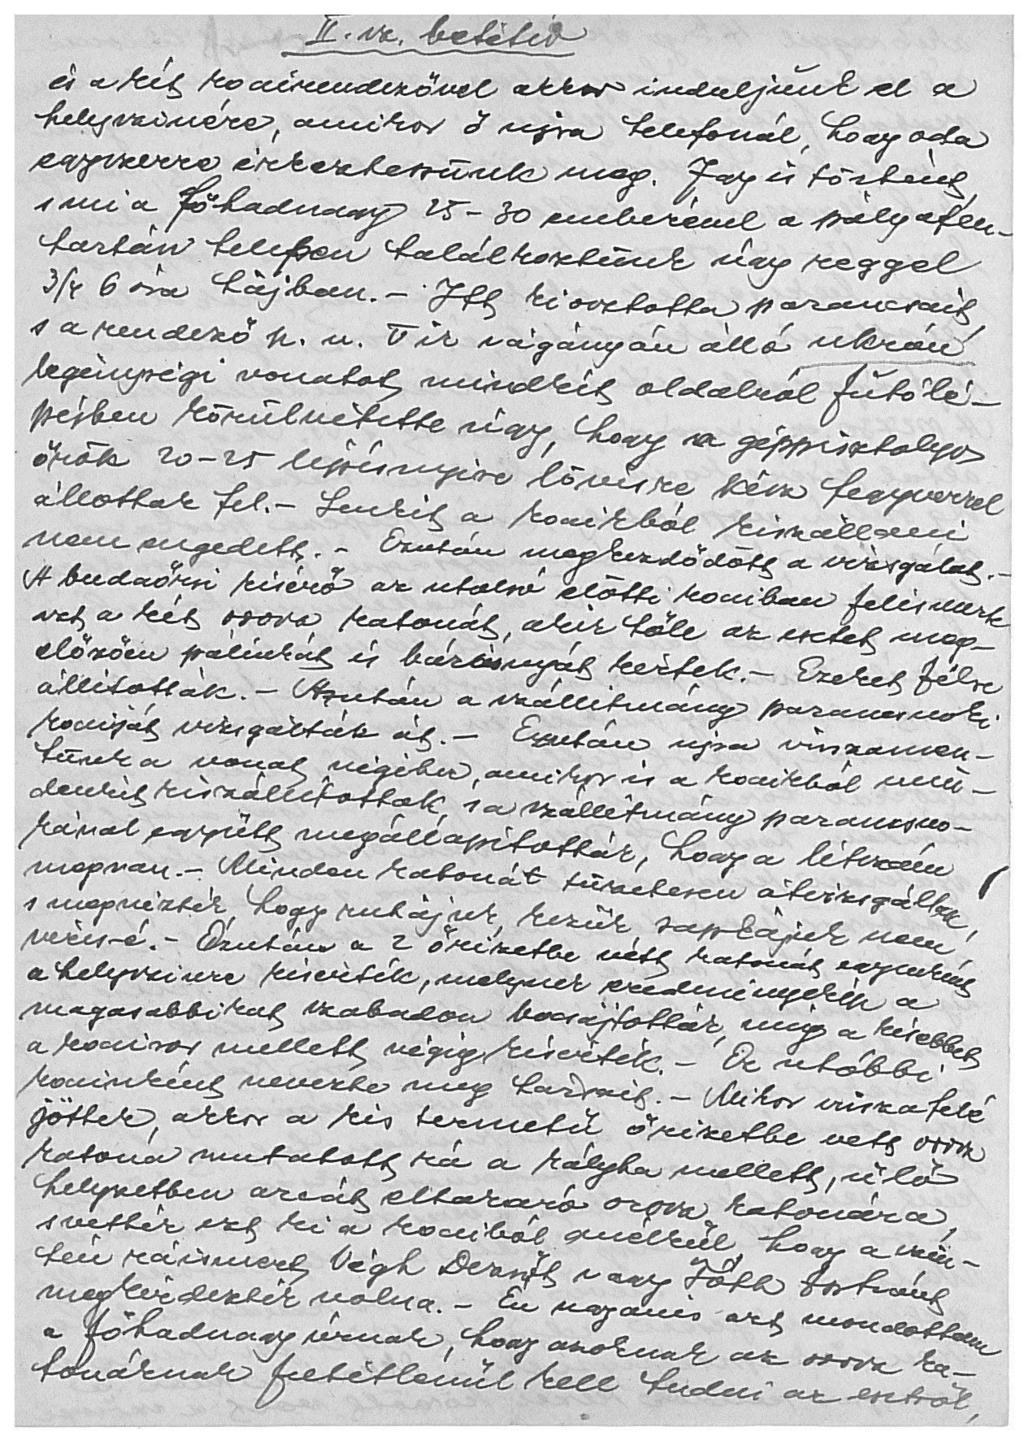 II. sz. betétív
és a két kocsirendezővel akkor induljunk el a
helyszínére, amikor ő ujra telefonál, hogy oda
egyszerre érkezhessünk meg. Igy is történt,
s mi a főhadnagy 25-30 emberével a pályafen-
tartási telepen találkoztunk úgy reggel
3/4 6 óra tájban. - Itt kiosztotta parancsait,
s a rendező p. u. II ik vágányán álló ukrán
legénységi vonatot mindkét oldalról futólé-
pésben körülvétette úgy, hogy a géppisztolyos
őrök 20-25 lépésnyire lövésre kész fegyverrel
állottak fel. - Senkit a kocsikból kiszállani
nem engedett. - Ezután megkezdődött a vizsgálat. -
A budaörsi kisérő az utolsó előtti kocsiban felismerte
azt a két orosz katonát, akik tőle az esetet meg-
előzően pálinkát és bárányát kértek. - Ezeket félre
állították. - Azután a szállítmány parancsnoki
kocsiját vizsgálták át. - Ezután ujra visszamen-
tünk a vonat végéhez, amikor is a kocsikból min-
denkit kiszállítottak s a szállítmány parancsno-
kával együtt megállapították, hogy a létszám
megvan. - Minden katonát tüzetesen átvizsgáltak,
s megnézték, hogy ruhájuk, kezük, sapkájuk nem
véres-é. - Ezután a 2 őrizetbe vett katonát egyenként
a helyszinre kisérték, melynek eredményekép a
magasabbikat szabadon bocsájtották, míg a kisebbet
a kocsisor mellett végig kisérték. - Ez utóbbi
kocsinként nevezte meg társait. - Mikor visszafelé
jöttek, akkor a kis termetű őrizetbe vett orosz
katona mutatott rá a kályha mellett, ülő
helyzetben arcát eltakaró orosz katonára,
s vették ezt ki a kocsiból anélkül, hogy a szin-
tén ráismert Végh Dezsőt vagy Tóth Istvánt
megkérdezték volna. - Én ugyanis azt mondottam
a főhadnagy úrnak, hogy azoknak az orosz ka-
tonáknak feltétlenül kell tudni az esetről,